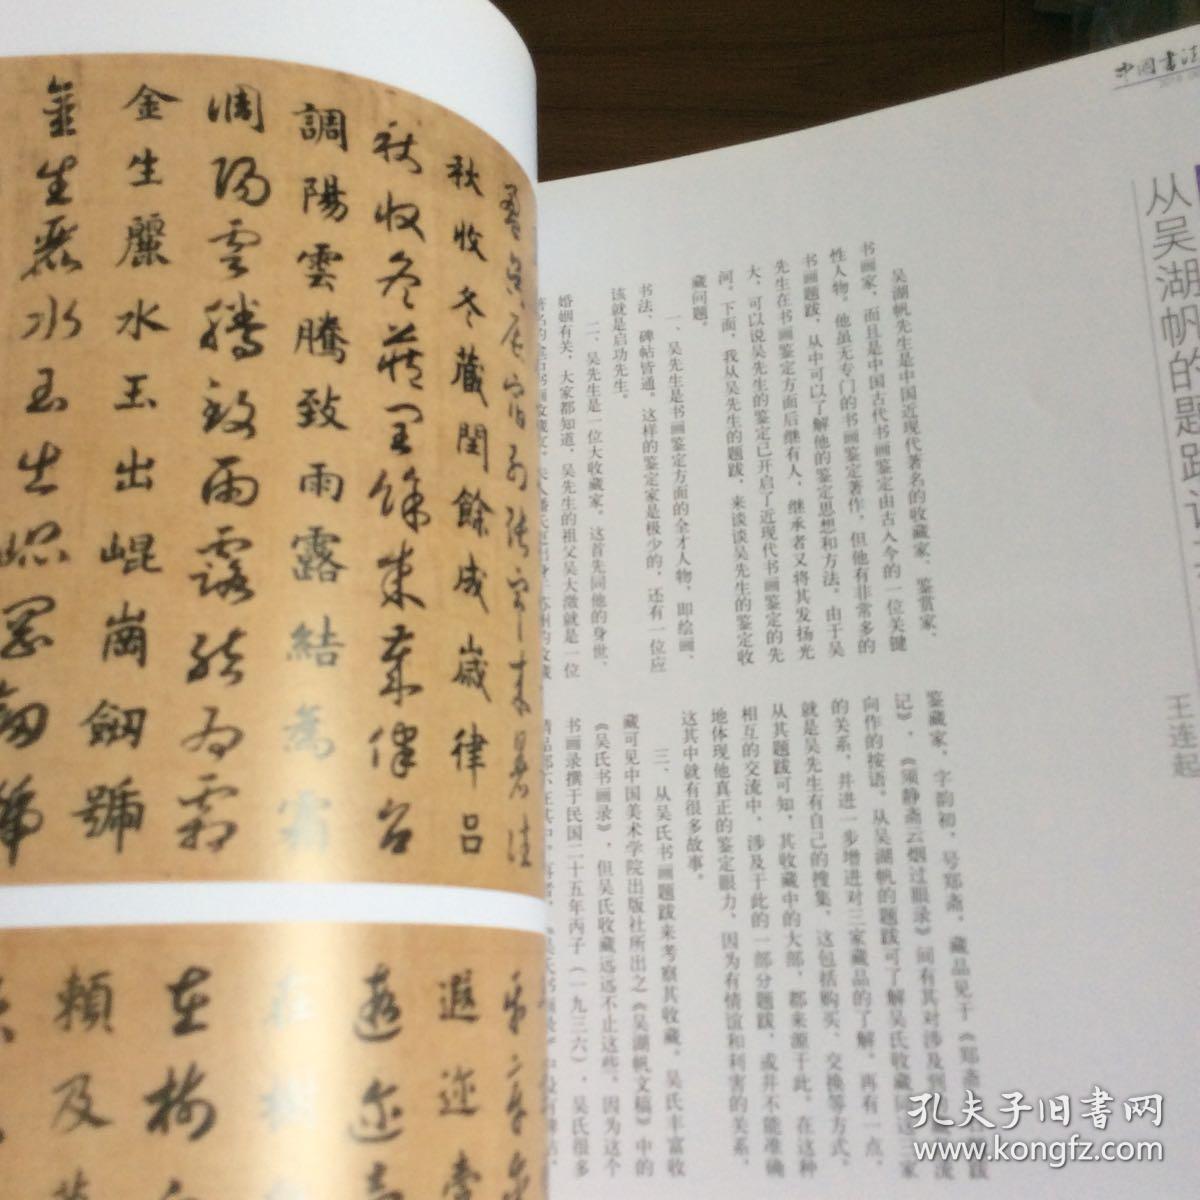 中国书法
从吴湖帆的题跋
王连起
吴湖帆先生是中国近现代著名的收藏家、鉴赏家、
书画家，而且是中国古代书画鉴定由古入今的一位关键
性人物。他虽无专门的书画鉴定著作，但他有非常多的
书画题跋，从中可以了解他的鉴定思想和方法。由于吴
先生在书画鉴定方面后继有人，继承者又将其发扬光
大，可以说吴先生的鉴定已开启了近现代书画鉴定的先
河。下面，我从吴先生的题跋，来谈谈吴先生的鉴定收
藏问题。
一、吴先生是书画鉴定方面的全才人物，即绘画、
书法、碑帖皆通。这样的鉴定家是极少的，还有一位应
该就是启功先生。
二、吴先生是一位大收藏家。这首先同他的身世、
婚姻有关，大家都知道，吴先生的祖父吴大澂就是一位
鉴藏家，字韵初，号郑斋，藏品见于《郑斋
记》，《须静斋云烟过眼录》间有其对涉及到
向作的按语。从吴湖帆的题跋可了解吴氏收藏同这三家
的关系，并进一步增进对三家藏品的了解。再有一点，
就是吴先生有自己的搜集，这包括购买、交换等方式。
从其题跋可知，其收藏中的大部，都来源于此。在这种
相互的交流中，涉及于此的一部分题跋，或并不能准确
地体现他真正的鉴定眼力，因为有情谊和利害的关系，
这其中就有很多故事。
三、从吴氏书画题跋来考察其收藏。吴氏丰富收
藏可见中国美术学院出版社所出之《吴湖帆文稿》中的
《吴氏书画录》，但吴氏收藏远远不止这些。因为这个
书画录撰于民国二十五年丙子（一九三六），吴氏很多
秋收冬藏閏餘成歲律呂
秋收冬藏閏餘成歲律呂
調陽雲騰致雨露結為霜
調陽雲騰致雨露結為霜
金生麗水玉出崐崗劔號
金生麗水玉出崐崗劔號
遐迩壹
遐迩壹
在樹
在樹
賴及
孔夫子旧书网
www.kongfz.com